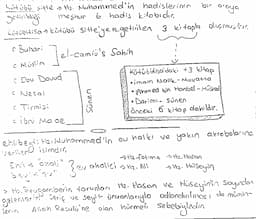 Kütübü Sitte → Hz Muhammed'in hadislerinin bir araya
getirildiği meşhur 6 hadis kitabıdır.
Kütübüttisa → Kütübü sitte'ye getirilen 3 kitapla oluşmuştur.
Buhari
Müslim
el-camiu's Sahih
Ebu Davud
Nezai
Tirmizi
ibni Mace
Sünen
Kütübüsittedeki +3 kitap
• imam Malik - Muvatta
• Ahmed bin Hanbel - Müsned
• Darimi - Sünen
öncesi 6 kitap dahildir.
ehlibeyt: Hz. Muhammed'in ev halkı ve yakın akrabalarına
verilen isimdir.
ev ahalisi
→ Hz. Fatıma → Hz. Hasan
→ Hz. Ali → Hz. Hüseyin
→ Hz. Peygamberin torunları Hz. Hasan ve Hüseyin'in soyundan
gelenlerin Şerif ve Seyit ünvanlarıyla adlandırılması da
Allah Rasulü'ne olan hürmet sebebiyledir.